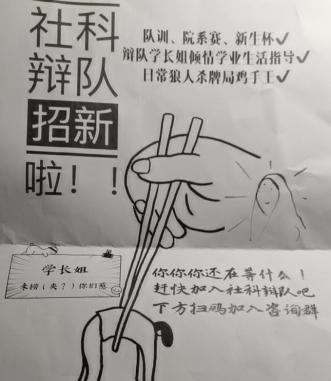 社科
辩队
招新
啦！！
队训、院系赛、新生杯✓
辩队学长姐倾情学业生活指导✓
日常狼人杀牌局鸡手工✓
学长姐
来捞（夹？）你们惹
你你你还在等什么！
赶快加入社科辩队吧
下方扫码加入咨询群